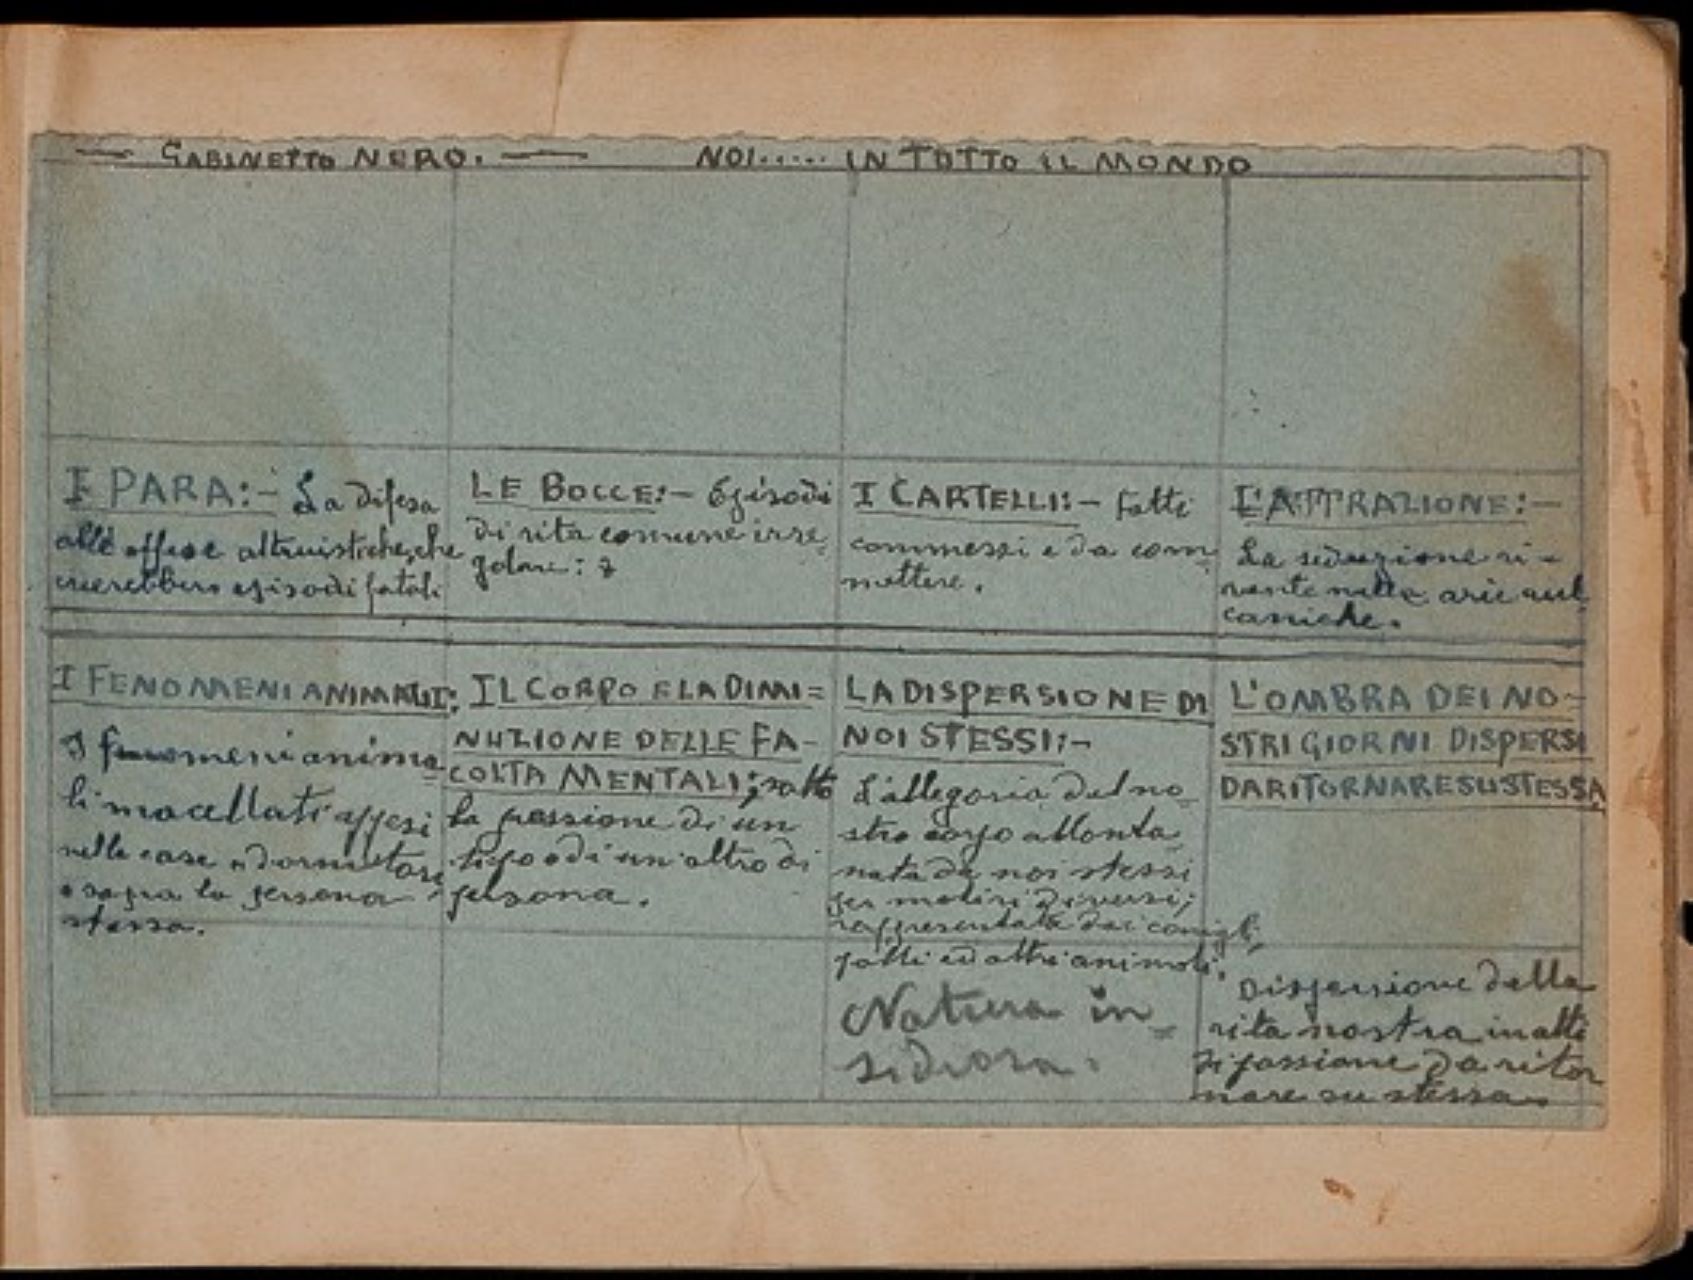 — GABINETTO NERO. — NOI..... IN TUTTO IL MONDO
I PARA:- La difesa
alle offese altruistiche, che
creerebbero episodi fatali
LE BOCCE:- Episodi
di vita comune irre-
golare:
I CARTELLI:- Fatti
commessi e da com-
mettere.
L'ATTRAZIONE:-
La seduzione ri-
vente nelle arie vul
caniche.
I FENOMENI ANIMALI:
I fenomeni anima-
li macellati appesi
nelle case e dormitori
o sopra la persona
stessa.
IL CORPO E LA DIMI=
NUZIONE DELLE FA-
COLTA MENTALI; sotto
la passione di un
tipo o di un'altro di
persona.
LA DISPERSIONE DI
NOI STESSI:-
L'allegoria del no-
stro corpo allonta-
nata da noi stessi
per motivi diversi;
rappresentata dai conigli,
gatti ed altri animali.
Natura in=
sidiosa.
L'OMBRA DEI NO-
STRI GIORNI DISPERSI
DA RITORNARE SU STESSA
Dispersione della
vita nostra in atti
di passione da ritor
nare su stessa.